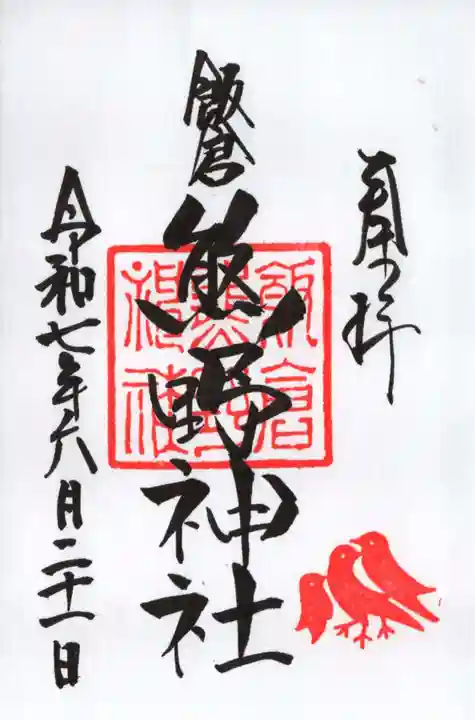 奉拝
飯倉
熊野神社
飯倉
熊野
神社
令和七年六月二十一日